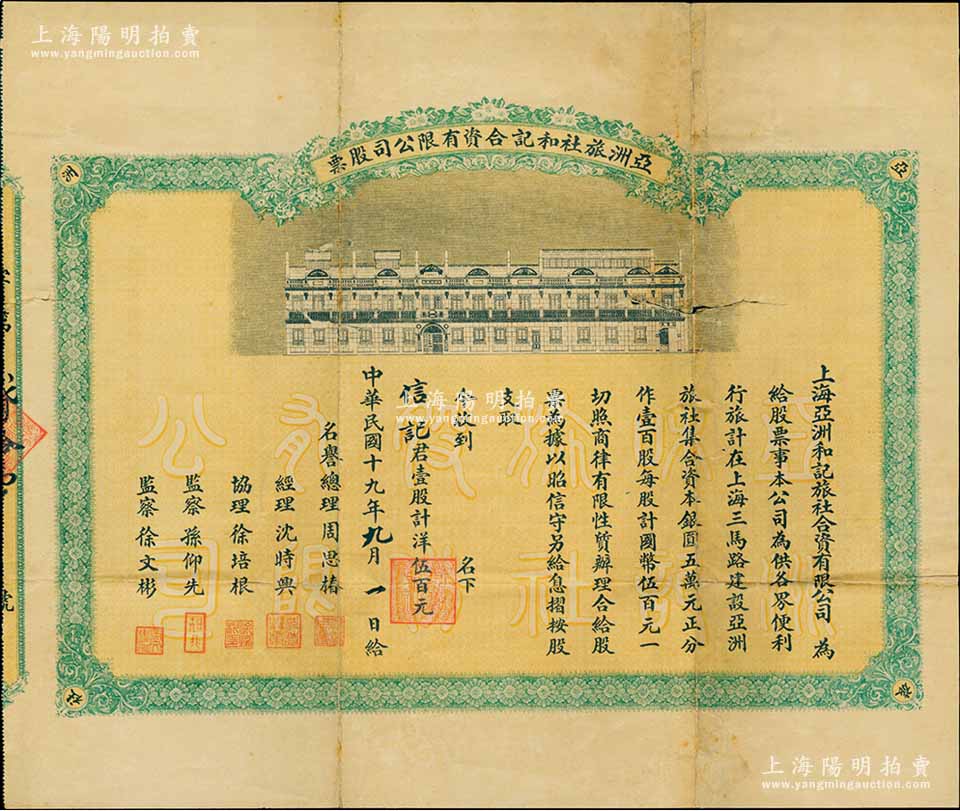 上海陽明拍賣
www.yangmingauction.com
亞洲旅社和記合資有限公司股票
亞
洲
旅
社
上海亞洲和記旅社合資有限公司 為
給股票事本公司為供各界便利
行旅計在上海三馬路建設亞洲
旅社集合資本銀圓五萬元正分
作壹百股每股計國幣伍百元一
切照商律有限性質辦理合給股
票為據以昭信守另給息摺按股
支取
今收到 名下
信記君壹股計洋伍百元
中華民國十九年九月一日給
名譽總理周思椿
經理沈時興
協理徐培根
監察孫仰先
監察徐文彬
號
上海陽明拍賣
www.yangmingauction.com
上海陽明拍賣
www.yangmingauction.com